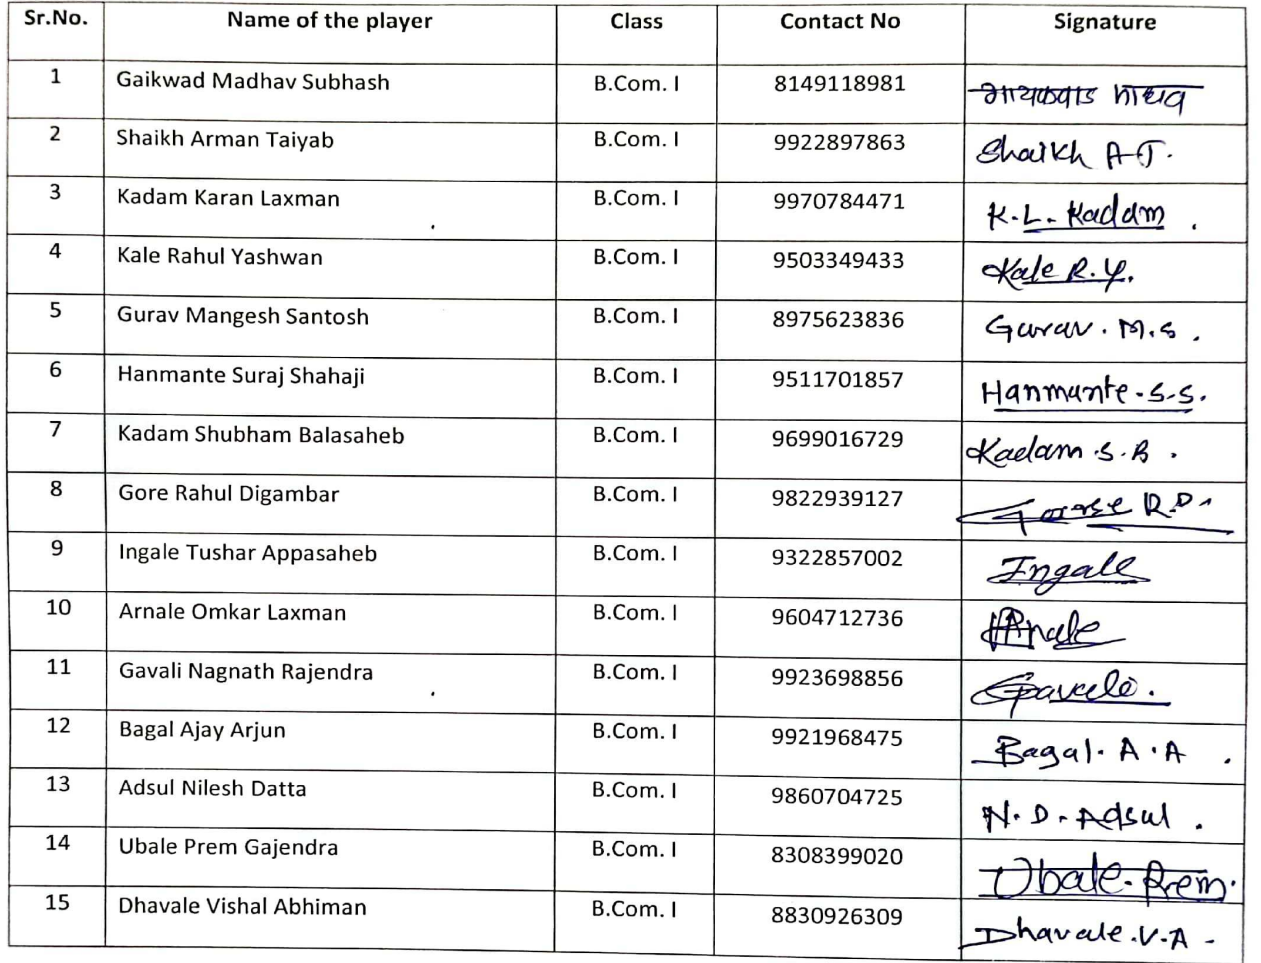 Sr.No. Name of the player Class Contact No Signature
1 Gaikwad Madhav Subhash B.Com. I 8149118981 गायकवाड माधव
2 Shaikh Arman Taiyab B.Com. I 9922897863 Shaikh A.T.
3 Kadam Karan Laxman B.Com. I 9970784471 K.L. Kadam .
4 Kale Rahul Yashwan B.Com. I 9503349433 Kale R.Y.
5 Gurav Mangesh Santosh B.Com. I 8975623836 Gurav. M.S.
6 Hanmante Suraj Shahaji B.Com. I 9511701857 Hanmante.S.S.
7 Kadam Shubham Balasaheb B.Com. I 9699016729 Kadam.S.B.
8 Gore Rahul Digambar B.Com. I 9822939127 R.D.
9 Ingale Tushar Appasaheb B.Com. I 9322857002 Ingale
10 Arnale Omkar Laxman B.Com. I 9604712736
11 Gavali Nagnath Rajendra B.Com. I 9923698856
12 Bagal Ajay Arjun B.Com. I 9921968475 Bagal.A.A.
13 Adsul Nilesh Datta B.Com. I 9860704725 N.D.Adsul.
14 Ubale Prem Gajendra B.Com. I 8308399020 Ubale.Prem.
15 Dhavale Vishal Abhiman B.Com. I 8830926309 Dhavale.V.A.